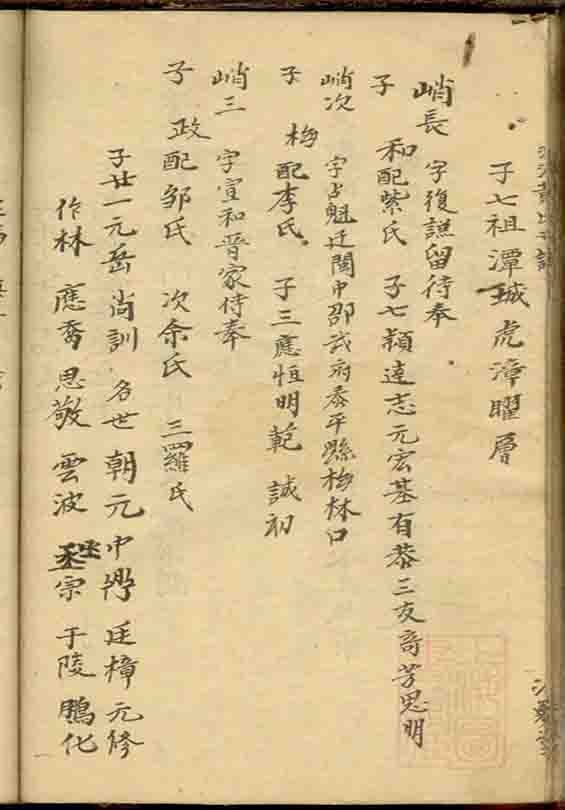 子七祖潭城虎漳曜層
峭長 字復謙留待奉
子 和配紫氏 子七穎達志元宏基有恭三友奇芳思明
峭次 字占魁迁閩中邵武府泰平縣梅林口
子 梅配李氏 子三應恒明範誠初
峭三 字宣和晋家侍奉
子 政配邹氏 次余氏 三羅氏
子廿一元岳尚訓 名世朝元中 廷樟元修
作林 應喬思敬雲波 宗于陵鵬化